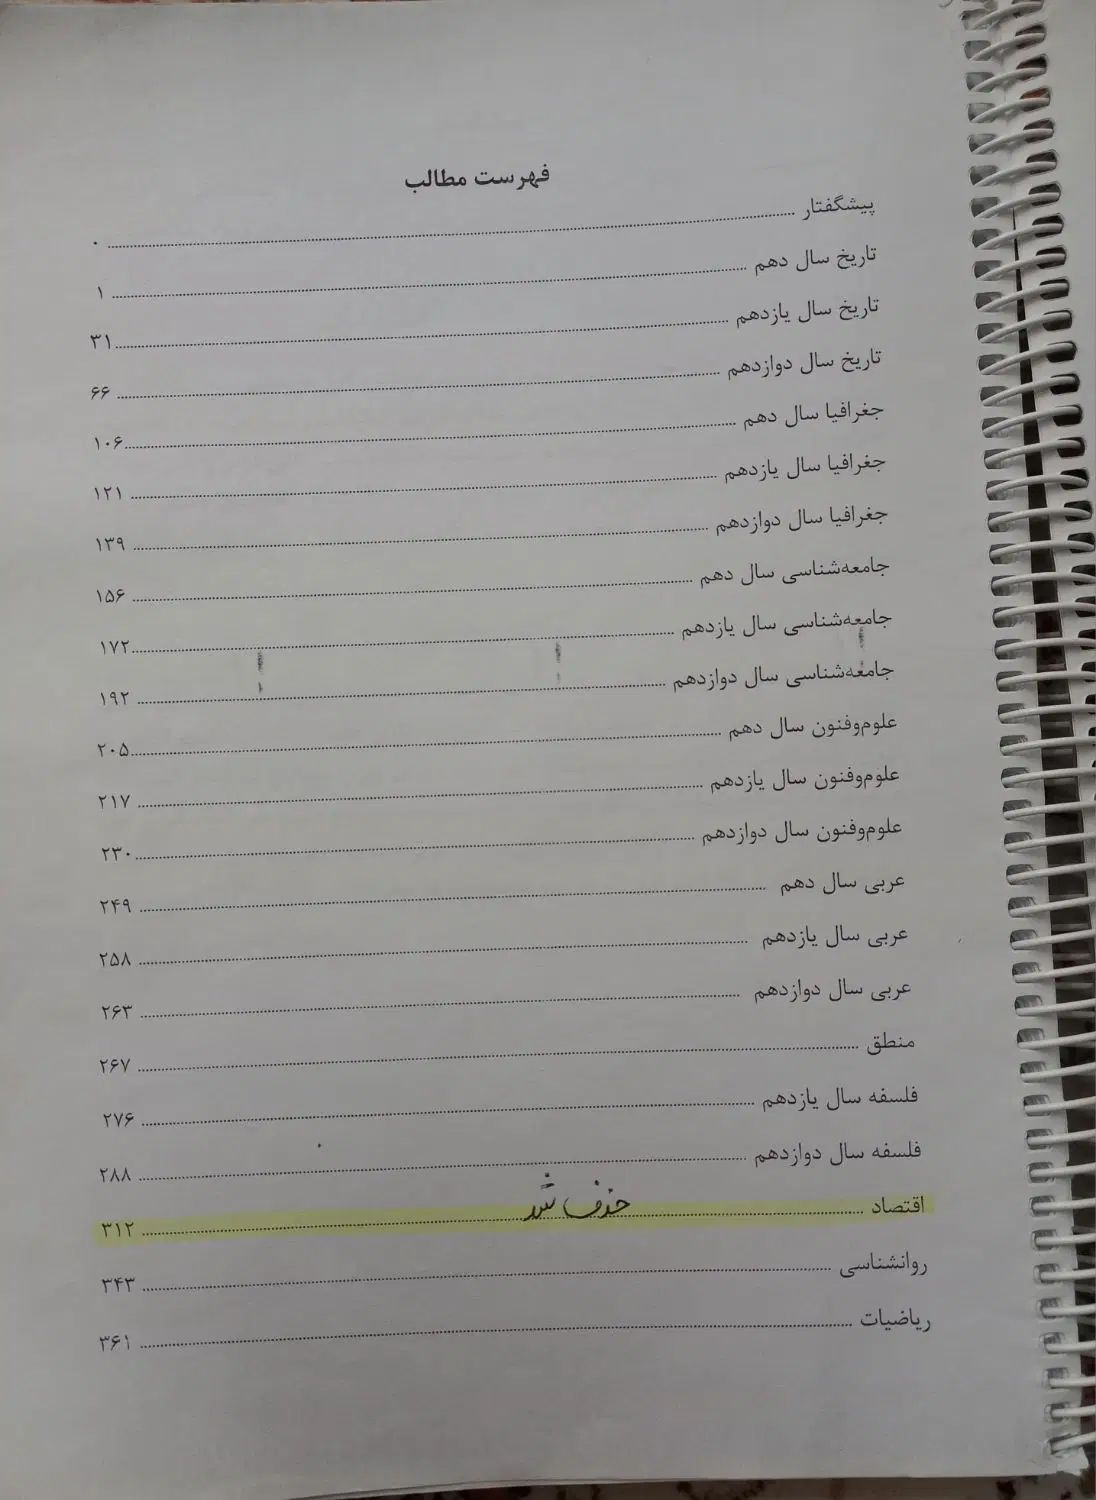 فهرست مطالب
پیشگفتار ........ ۰
تاریخ سال دهم ........ ۱
تاریخ سال یازدهم ........ ۳۱
تاریخ سال دوازدهم ........ ۶۶
جغرافیا سال دهم ........ ۱۰۶
جغرافیا سال یازدهم ........ ۱۲۱
جغرافیا سال دوازدهم ........ ۱۳۹
جامعه‌شناسی سال دهم ........ ۱۵۶
جامعه‌شناسی سال یازدهم ........ ۱۷۲
جامعه‌شناسی سال دوازدهم ........ ۱۹۲
علوم‌وفنون سال دهم ........ ۲۰۵
علوم‌وفنون سال یازدهم ........ ۲۱۷
علوم‌وفنون سال دوازدهم ........ ۲۳۰
عربی سال دهم ........ ۲۴۹
عربی سال یازدهم ........ ۲۵۸
عربی سال دوازدهم ........ ۲۶۳
منطق ........ ۲۶۷
فلسفه سال یازدهم ........ ۲۷۶
فلسفه سال دوازدهم ........ ۲۸۸
اقتصاد ........ حذف شد ........ ۳۱۲
روانشناسی ........ ۳۴۳
ریاضیات ........ ۳۶۱